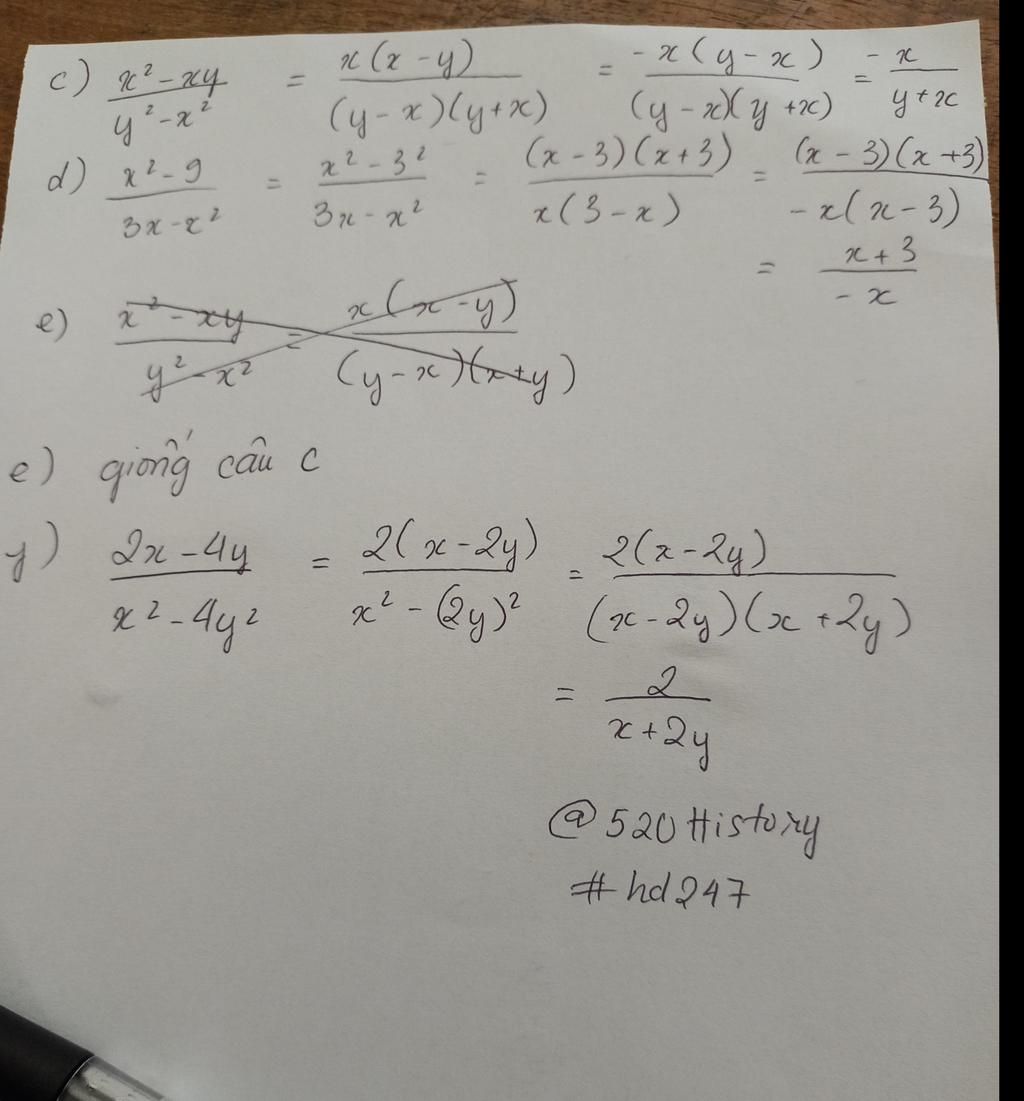 c) (x² - xy)/(y² - x²) = x(x - y)/((y - x)(y + x)) = -x(y - x)/((y - x)(y + x)) = -x/(y + x)
d) (x² - 9)/(3x - x²) = (x² - 3²)/(3x - x²) = (x - 3)(x + 3)/(x(3 - x)) = (x - 3)(x + 3)/(-x(x - 3))
= (x + 3)/(-x)
e) (x² - xy)/(y² - x²) = x(x - y)/((y - x)(x + y))
e) giống câu c
y) (2x - 4y)/(x² - 4y²) = 2(x - 2y)/(x² - (2y)²) = 2(x - 2y)/((x - 2y)(x + 2y))
= 2/(x + 2y)
@520History
#hd247